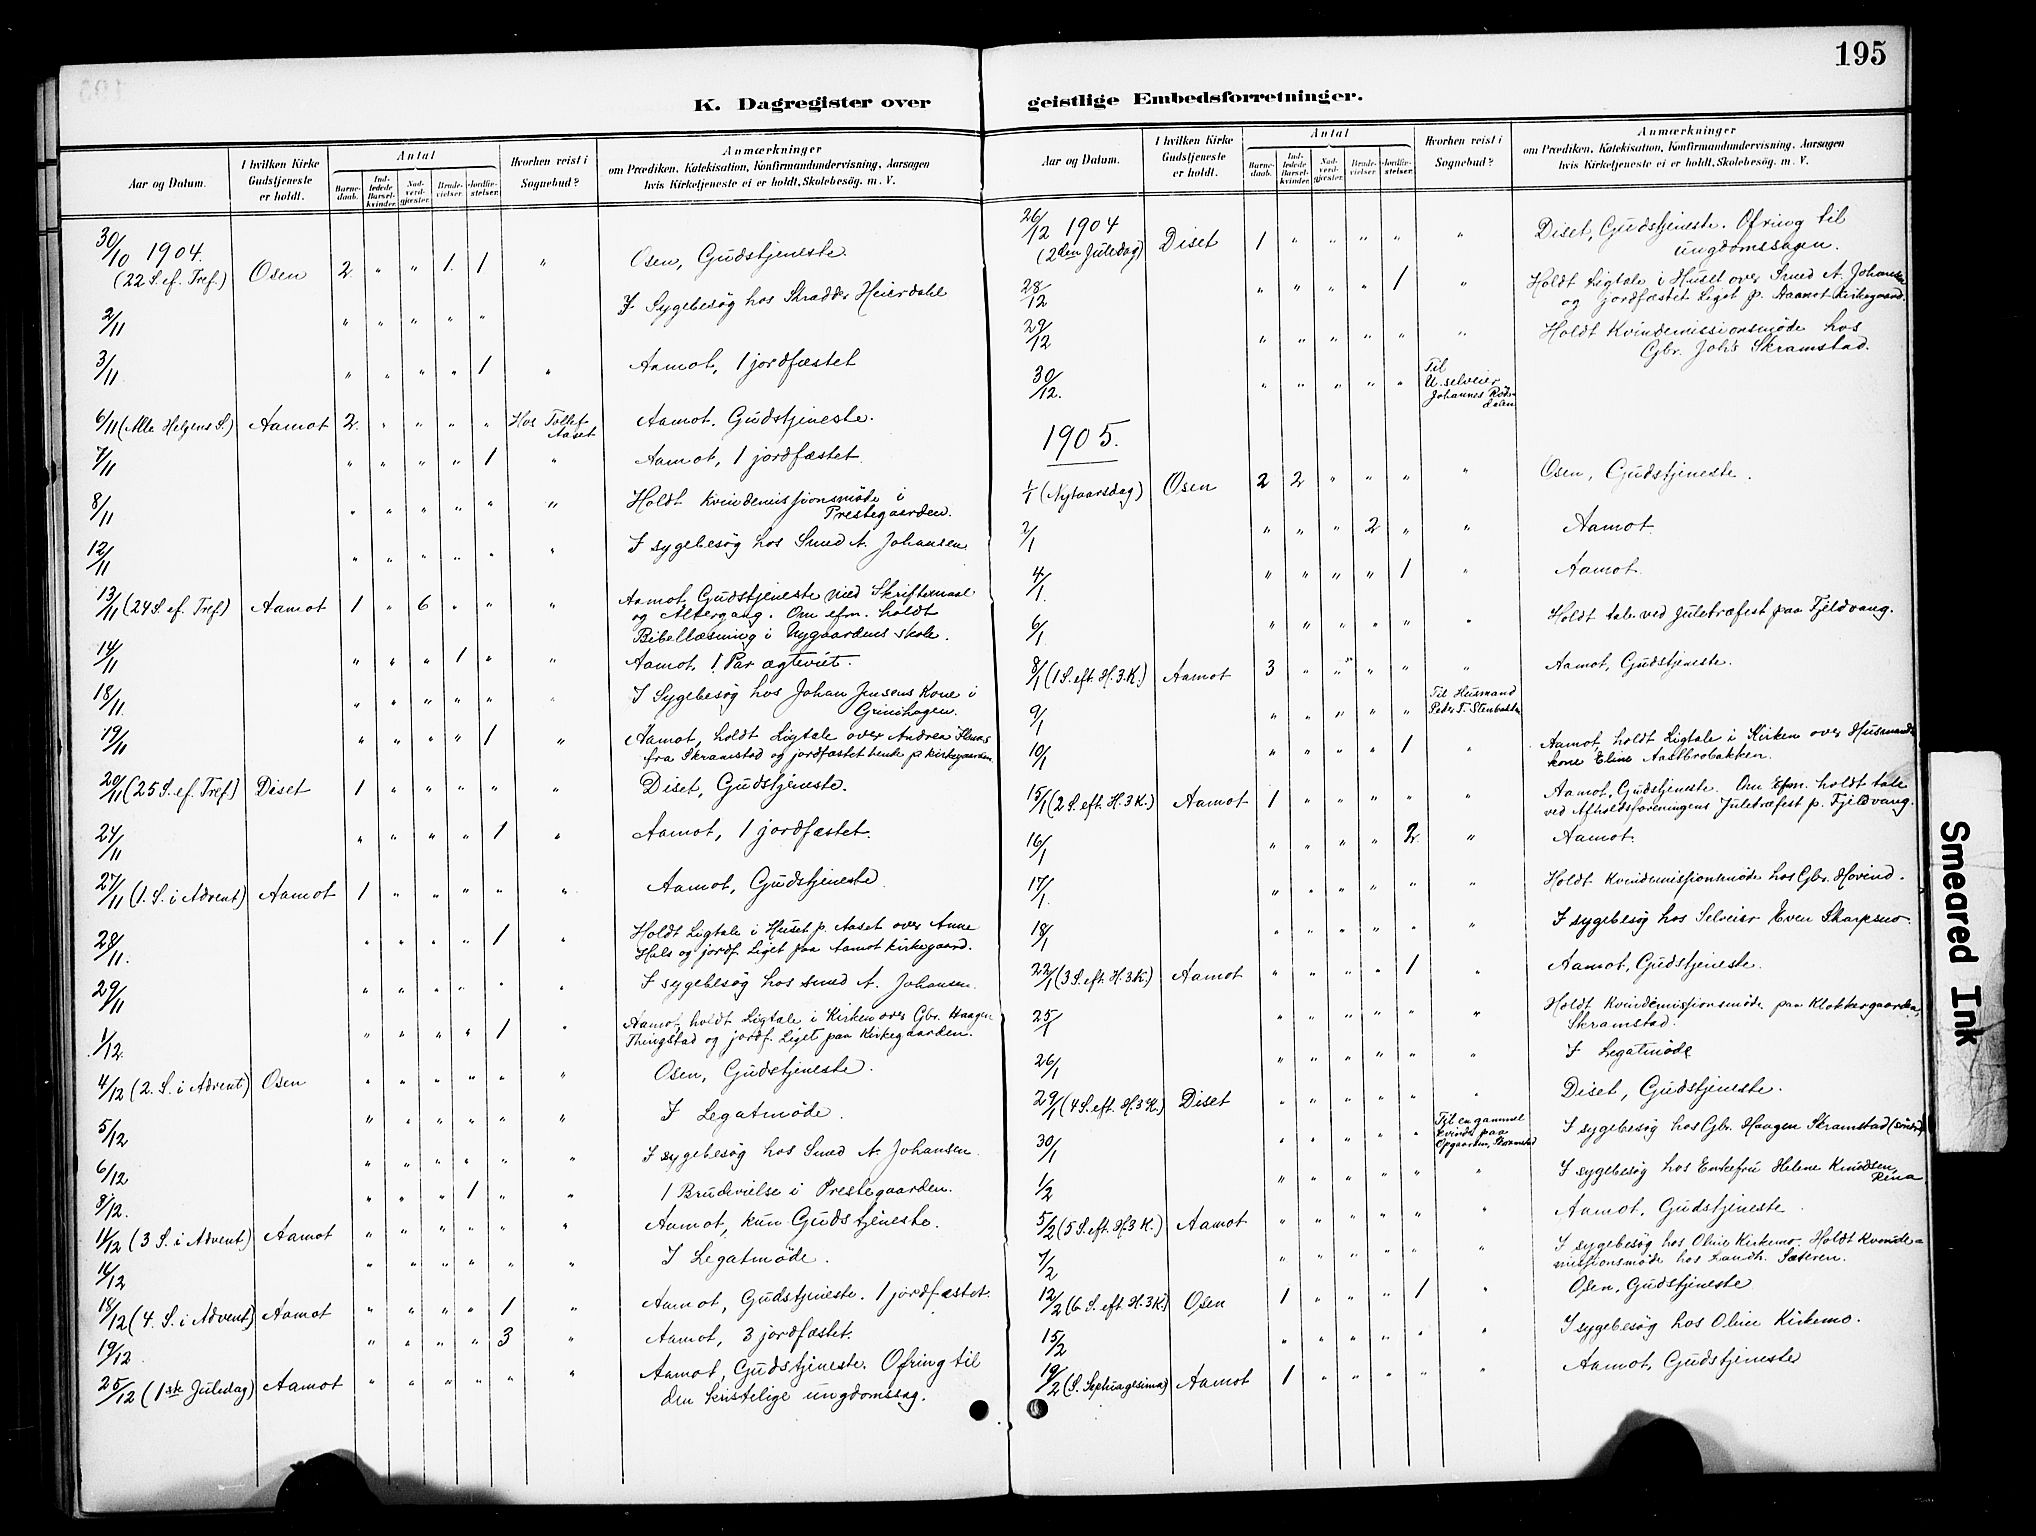 195
K. Dagregister over
Aar og Datum.
I hvilken Kirke
Gudstjeneste
er holdt.
Antal
Barne-
daab.
Ind-
ledede
Barsel-
kvinder.
Nad-
verd-
gjæster.
Brude-
vielser.
Jordfæ-
stelser.
Hvorhen reist i
Sognebud?
Anmærkninger
om Prædiken, Katekisation, Konfirmandundervisning, Aarsagen
hvis Kirketjeneste ei er holdt, Skolebesøg. m. V.
30/10 1904.
(22 S. ef. Tref.) Osen 2 " " 1. 1 " Osen, Gudstjeneste.
2/11 " " " " " I Sygebesøg hos Skrædder Heierdahl
3/11 " " " " 1 " Aamot, 1 jordfæstet
6/11 (Alle Helgens S.) Aamot 2. " " " " Hos Tollef Aaset Aamot. Gudstjeneste.
7/11 " " " " 1 " Aamot, 1 jordfæstet.
8/11 " " " " " " Holdt Kvindemissjonsmöde i
Prestegaarden.
12/11 " " " " " " I sygebesøg hos Smed A. Johansen
13/11 (24 S. ef. Tref.) Aamot 1 " 6 " " " Aamot, Gudstjeneste med Skriftemaal
og Altergang. Om efm. holdt
Bibellæsning i Nygaardens skole.
14/11 " " " 1 " " Aamot, 1 Par ægteviet.
18/11 " " " " " " I Sygebesøg hos Johan Jensens Kone i
Grinihagen.
19/11 " " " " 1 " Aamot, holdt Ligtale over Andrea
fra Skramstad og jordfæstet hende p. kirkegaarden.
20/11 (25 S. ef. Tref.) Diset 1 " " " " " Diset, Gudstjeneste.
24/11 " " " " 1 " Aamot, 1 jordfæstet.
27/11 (1. S. i Advent) Aamot 1 " " " " " Aamot, Gudstjeneste
28/11. " " " " 1 " Holdt Ligtale i Huset p. Aaset over Anne
Hals og jordf. Liget paa Aamot kirkegaard.
29/11 " " " " " " I sygebesøg hos smed A. Johansen.
1/12. " " " " 1 " Aamot, holdt Ligtale i Kirken over Gbr. Haagen
Thingstad og jordf. Liget paa Kirkegaarden.
4/12 (2. S. i Advent) Osen " " " " " " Osen, Gudstjeneste.
5/12 " " " " " " I Legatmøde.
6/12 " " " " " " I sygebesøg hos Smed A. Johansen.
8/12. " " " 1 " " 1 Brudevielse i Prestegaarden.
11/12 (3 S. i Advent) Aamot " " " " " " Aamot, kun Gudstjeneste.
16/12 " " " " " " I Legatmøde.
18/12 (4. S. i Advent) Aamot " " " " 1 " Aamot, Gudstjeneste. 1 jordfæstet.
19/12 " " " " 3 " Aamot, 3 jordfæstet.
25/12 (1ste Juledag) Aamot " " " " " " Aamot, Gudstjeneste. Ofring til
den kristelige ungdomssag.
geistlige Embedsforretninger.
Aar og Datum.
I hvilken Kirke
Gudstjeneste
er holdt.
Antal
Barne-
daab.
Ind-
ledede
Barsel-
kvinder.
Nad-
verd-
gjæster.
Brude-
vielser.
Jordfæ-
stelser.
Hvorhen reist i
Sognebud?
Anmærkninger
om Prædiken, Katekisation, Konfirmandundervisning, Aarsagen
hvis Kirketjeneste ei er holdt, Skolebesøg. m. V.
26/12 1904
(2den Juledag) Diset 1 " " " " " Diset, Gudstjeneste. Ofring til
ungdomssagen.
28/12 " " " " 1 " Holdt Ligtale i Huset over Smed A. Johansen
og jordfæstet Liget p. Aamot Kirkegaard.
29/12 " " " " " " Holdt Kvindemissionsmöde hos
Gbr. Johs Skramstad.
30/12. " " " " " Til
U. selveier
Johannes
1905.
1/1 (Nytaarsdag) Osen 2 2 " " " " Osen, Gudstjeneste.
2/1 " " " 2 " " Aamot.
4/1 " " " " 1 " Aamot.
6/1 " " " " " " Holdt tale ved Juletræfest paa Fjeldvang.
8/1 (1 S. eft. H. 3. K.) Aamot 3 " " " " " Aamot, Gudstjeneste.
9/1 " " " " " Til Husmand
Peder T. Stenbakken
10/1 " " " " 1 " Aamot, holdt Ligtale i Kirken over Husmands
kone Eline Aastbrobakken.
15/1 (2 S. eft. H. 3 K.) Aamot 1 " " " " " Aamot, Gudstjeneste. Om Efm. holdt tale
ved Afholdsforeningens Juletræfest p. Fjeldvang.
16/1 " " " " 2 " Aamot.
17/1. " " " " " " Holdt Kvindemissjonsmøde hos Gbr. Hovind.
18/1 " " " " " " I sygebesøg hos Selveier Even Skarpsno.
22/1 (3 S. eft. H. 3 K.) Aamot " " " " 1 " Aamot, Gudstjeneste.
25/1 " " " " " " Holdt Kvindemissjonsmøde paa Klokkergaarden,
Skramstad.
26/1 " " " " " " I Legatmøde
29/1 (4 S. eft. H. 3 K.) Diset " " " " " " Diset, Gudstjeneste.
30/1 " " " " " Til en gammel
kvinde paa
Opgaarden, Skramstad I sygebesøg hos Gbr. Haagen Skramstad
1/2 " " " " " " I sygebesøg hos Enkefru Helene Knudsen,
Rena
5/2 (5 S. eft. H. 3 K.) Aamot " " " " " " Aamot, Gudstjeneste
7/2 " " " " " " I sygebesøg hos Oline Kirkemo. Holdt Kvinde-
missionsmøde hos Landh. Sæteren.
12/2 (6. S. eft. H. 3 K.) Osen 1 " " " 1 " Osen, Gudstjeneste
15/2 " " " " " " I sygebesøg hos Oline Kirkemo.
19/2 (S. Septuagesima) Aamot 1 " " " " " Aamot, Gudstjeneste
Smeared Ink